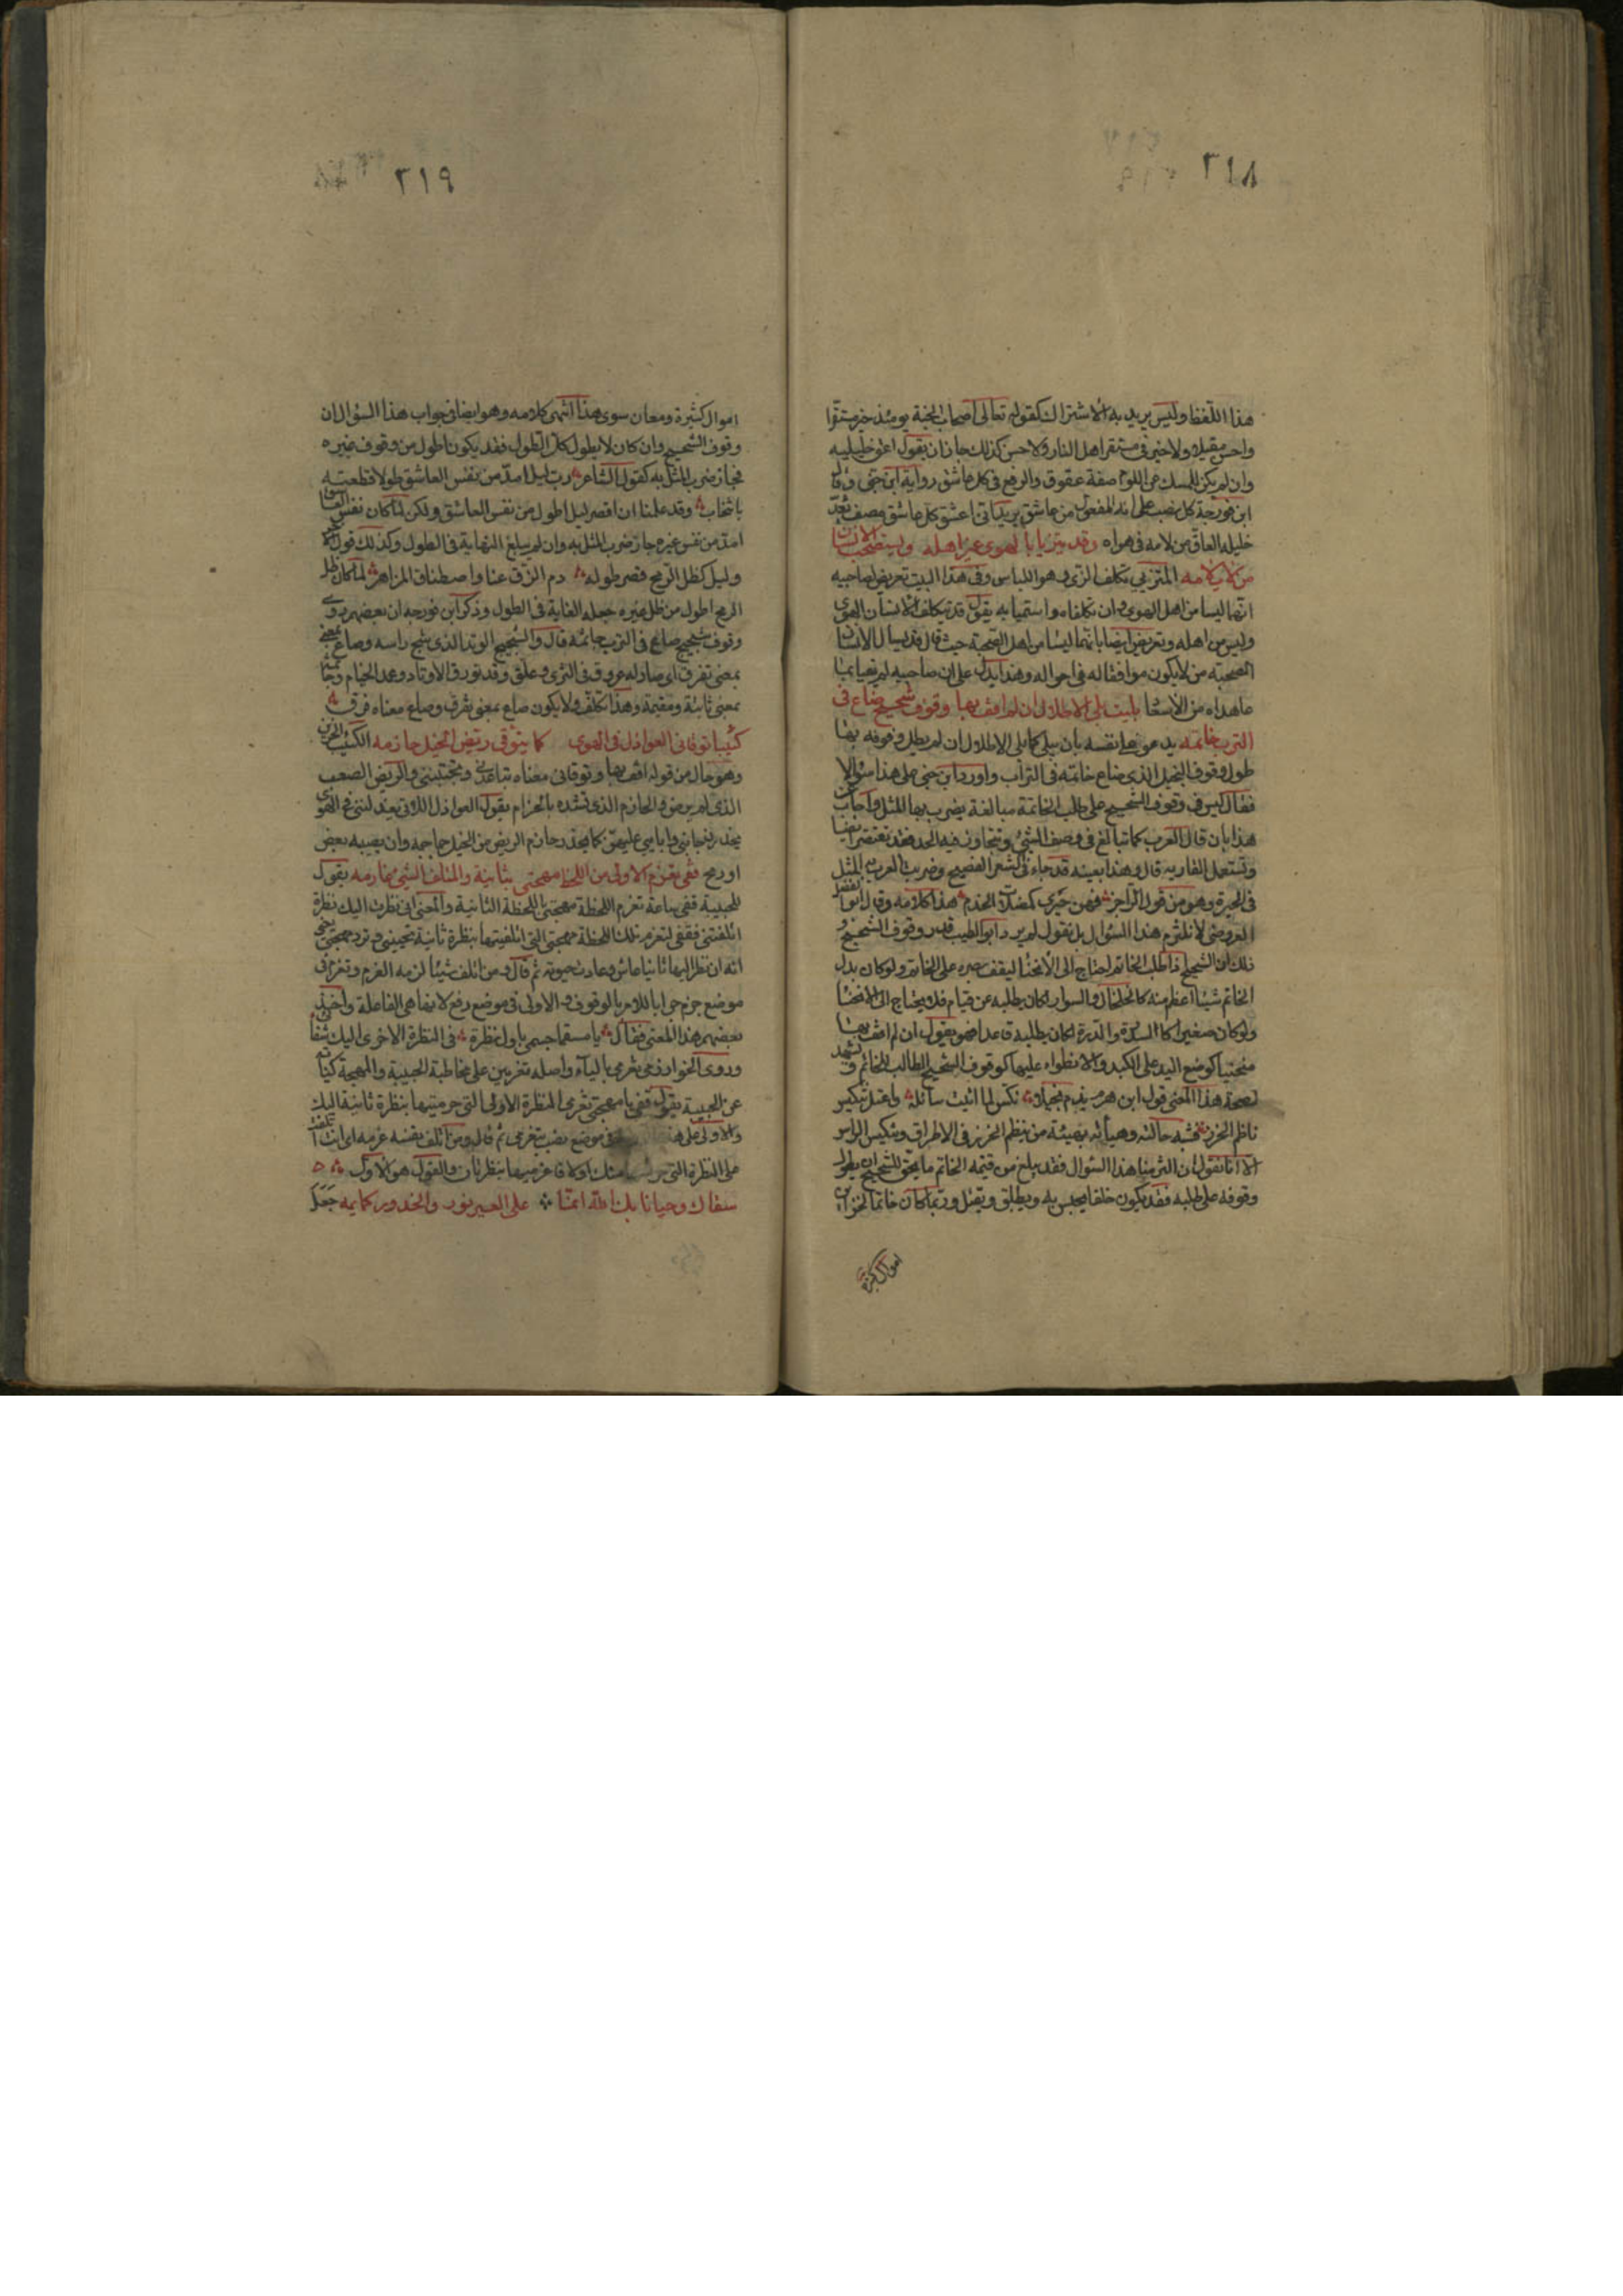 ٣١٨
هذا اللفظ وليس يريد به الاشتراك كقوله تعالى اصحاب الجنة يومئذ خير مستقرا
واحسن مقيلا ولا خير في مستقر اهل النار ولا حسن كذلك جاز ان يقول اعق خليليه
وان لم يكن للمسك عن اللوم صفة عقوق والرفع في كل عاشق رواية ابن جني وقال
ابن فورجة كل نصب على انه المفعول من عاشق يريد اني اعشق كل عاشق مصف يعد
خليله العاق من لامه في هواه وقد يتزيا بالهوى غير اهله ويستصحب الانسان
من لا يلايمه المتزيي تكلف الزي وهو اللباس وفي هذا البيت تعريض لصاحبيه
انهما ليسا من اهل الهوى وان تكلفاه واستميا به يقول قد يتكلف الانسان الهوى
وليس من اهله وتعريض ايضا بانهما ليسا من اهل الصحبة حيث قال قد يسال الانسان
الصحبة من لا يكون موافقا له في احواله وهذا يدل على ان صاحبيه لم يفيا بما
عاهداه من الاسعاد بليت بلى الاطلال ان لم اقف بها وقوف شحيح ضاع في
الترب خاتمه يدعو على نفسه بان يبلى كما بلى الاطلال ان لم يطل وقوفه بها
طول وقوف البخيل الذي ضاع خاتمه في التراب واورد ابن جني على هذا سؤالا
فقال ليس في وقوف الشحيح على طلب الخاتمة مبالغة يضرب بها المثل واجاب عن
هذا بان قال العرب كما تبالغ في وصف الشيء وتتجاوز فيه الحد فقد تقتصر ايضا
وتستعمل المقاربة قال وهذا بعينه قد جاء في الشعر الفصيح وضربت العرب به المثل
في الحيرة وهو من قول الراجز فهن حيرى كمضلات الخدم هذا كلامه وقال ابو الفضل
العروضي لا نلتزم هذا السؤال بل نقول لم يرد ابو الطيب قدر وقوف الشحيح و
ذلك ان الشحيح اذا طلب الخاتم احتاج الى الانحناء ليقف بصره على الخاتم ولو كان بدل
الخاتم شيئا اعظم منه كالخلخال والسوار لكان يطلبه عن قيام فلا يحتاج الى الانحناء
ولو كان صغيرا كالشذرة والدرة لكان يطلبه قاعدا فهو يقول ان لم اقف بها
منحنيا كوضع اليد على الكبد والانطواء عليها كوقوف الشحيح الطالب للخاتم ويشهد
لصحة هذا المعنى قول ابن هرمة يذم بخيلا نكس لما اتيت سائله واعتل تنكيس
ناظم الخرز فشبه حالته وهيأته بهيئة من ينظم الخرز في الاطراق وتنكيس الراس
الا انا نقول ان التزمنا هذا السؤال فقد بلغ من قيمة الخاتم ما يحق للشحيح ان يطول
وقوفه على طلبه فقد يكون خلقا يحبس به ويطلق ويقتل وربما كان خاتما لخزاين
اموال كثيرة
٣١٩
اموال كثيرة ومعان سوى هذا انتهى كلامه وهو ايضا في جواب هذا السؤال ان
وقوف الشحيح وان كان لا يطول كل الطول فقد يكون اطول من وقوف غيره
فجاز ضرب المثل به كقول الشاعر رب ليل امد من نفس العاشق طولا قطعته
بانتحاب وقد علمنا ان اقصر ليل اطول من نفس العاشق ولكن لما كان نفس العاشق
امد من نفس غيره جاز ضرب المثل به وان لم يبلغ النهاية في الطول وكذلك قول
وليل كظل الرمح قصر طوله دم الزق عنا واصطفاق المزاهر لما كان ظل
الرمح اطول من ظل غيره جعله الغاية في الطول وذكر ابن فورجه ان بعضهم روى
وقوف شجيج ضاع في الترب خاتمه قال والشجيج الوتد الذي شج راسه وضاع بمعنى
بمعنى تفرق اي صار له عروق في الثرى وعلق وقد تورق الاوتاد وعمد الخيام
بمعنى ثابتة ومقيمة وهذا تكلف ولا يكون ضاع بمعنى تفرق وضاع معناه فرق
كئيبا توقاني العواذل في الهوى كما يتوقى ريض الخيل حازمه الكئيب الحزين
وهو حال من قوله اقف بها وتوقاني معناه تباعدني وتجتنبني والريض الصعب
الذي لم يرض والحازم الذي يشده بالحزام يقول العواذل اللاتي يعذلنني في الهوى
يحذرن جانبي وابايي عليهن كما يحذر حازم الريض من الخيل جماحه وان يصيبه بعض
او رمح قفي تغرم الاولى من اللحظ مهجتي بثانية والمتلف الشيء غارمه يقول
للحبيبة قفي ساعة تغرم اللحظة مهجتي باللحظة الثانية والمعنى اني نظرت اليك نظرة
اتلفتني فقفي لتغرم تلك اللحظة مهجتي التي اتلفتها بنظرة ثانية تحييني وترد مهجتي يعني
انه ان نظر اليها ثانيا عاش وعادت حيوته ثم قال ومن اتلف شيئا لزمه الغرم وتغرم في
موضع جزم جوابا للامر بالوقوف والاولى في موضع رفع لانها هي الفاعلة واخذ
بعضهم هذا المعنى فقال يا مسقما جسمي باول نظرة في النظرة الاخرى اليك شفائي
وروى الخوارزمي تغرمي بالياء واصله تغرمين على مخاطبة الحبيبة والمهجة كناية
عن الحبيبة يقول قفي يا مهجتي تغرمي النظرة الاولى التي حرمتنيها بنظرة ثانية اليك
والاولى على هذا في موضع نصب بتغرمي ثم قال ومن اتلف نفسه غرمه اي انت اتلفت
على النظرة التي منك اولا فاغرميها بنظر ثان والقول هو الاول
سقاك وحيانا بك الله انما على العيس نور والخدور كمايمه جعل